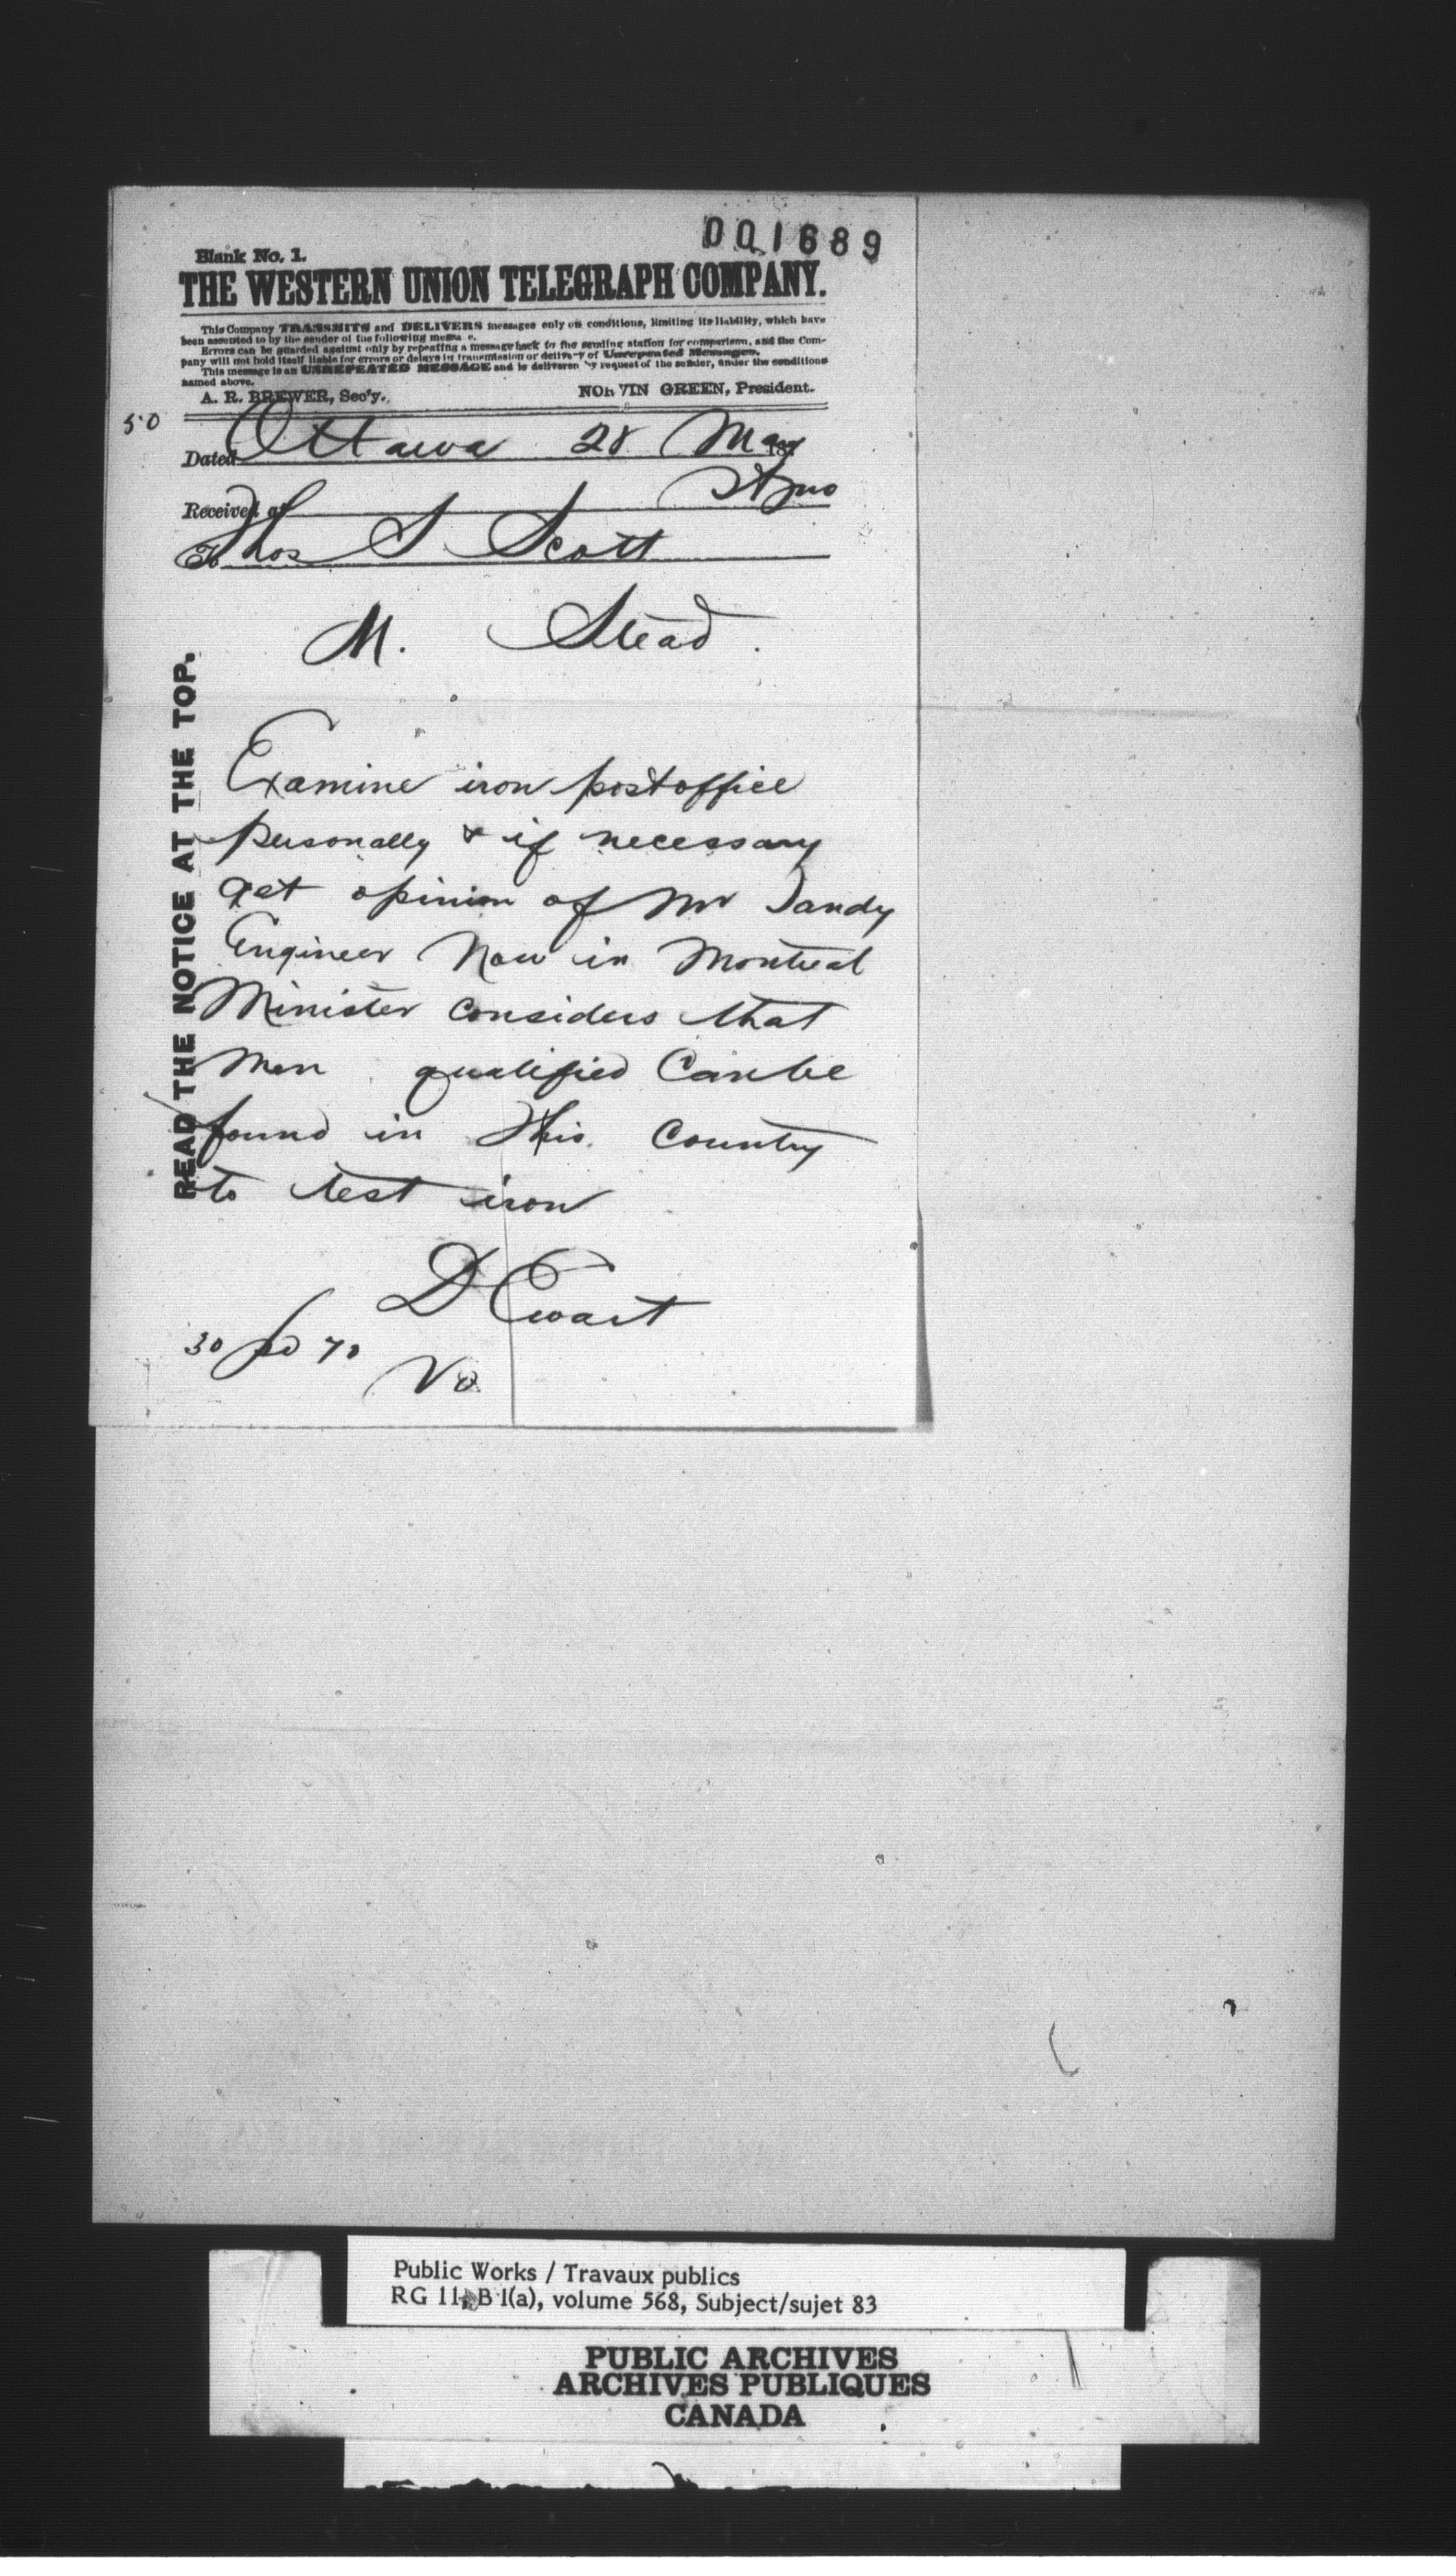 001689
Blank No. 1.
THE WESTERN UNION TELEGRAPH COMPANY.
This Company TRANSMITS and DELIVERS messages only on conditions, limiting its liability, which have
been assented to by the sender of the following message.
Errors can be guarded against only by repeating a message back to the sending station for comparison, and the Com-
pany will not hold itself liable for errors or delays in transmission or delivery of Unrepeated Messages.
This message is an UNREPEATED MESSAGE and is delivered by request of the sender, under the conditions
named above.
A. R. BREWER, Sec'y. NORVIN GREEN, President.
50
Dated Ottawa 28 May 187
Received at St Jno
To Thos S Scott
M. Stead.
READ THE NOTICE AT THE TOP.
Examine iron postoffice
personally & if necessary
get opinion of Mr
Engineer Now in Montreal
Minister considers that
men qualified Can be
found in this Country
to test iron
D Ewart
30 pd 70
Public Works / Travaux publics
RG 11, B 1(a), volume 568, Subject/sujet 83
PUBLIC ARCHIVES
ARCHIVES PUBLIQUES
CANADA